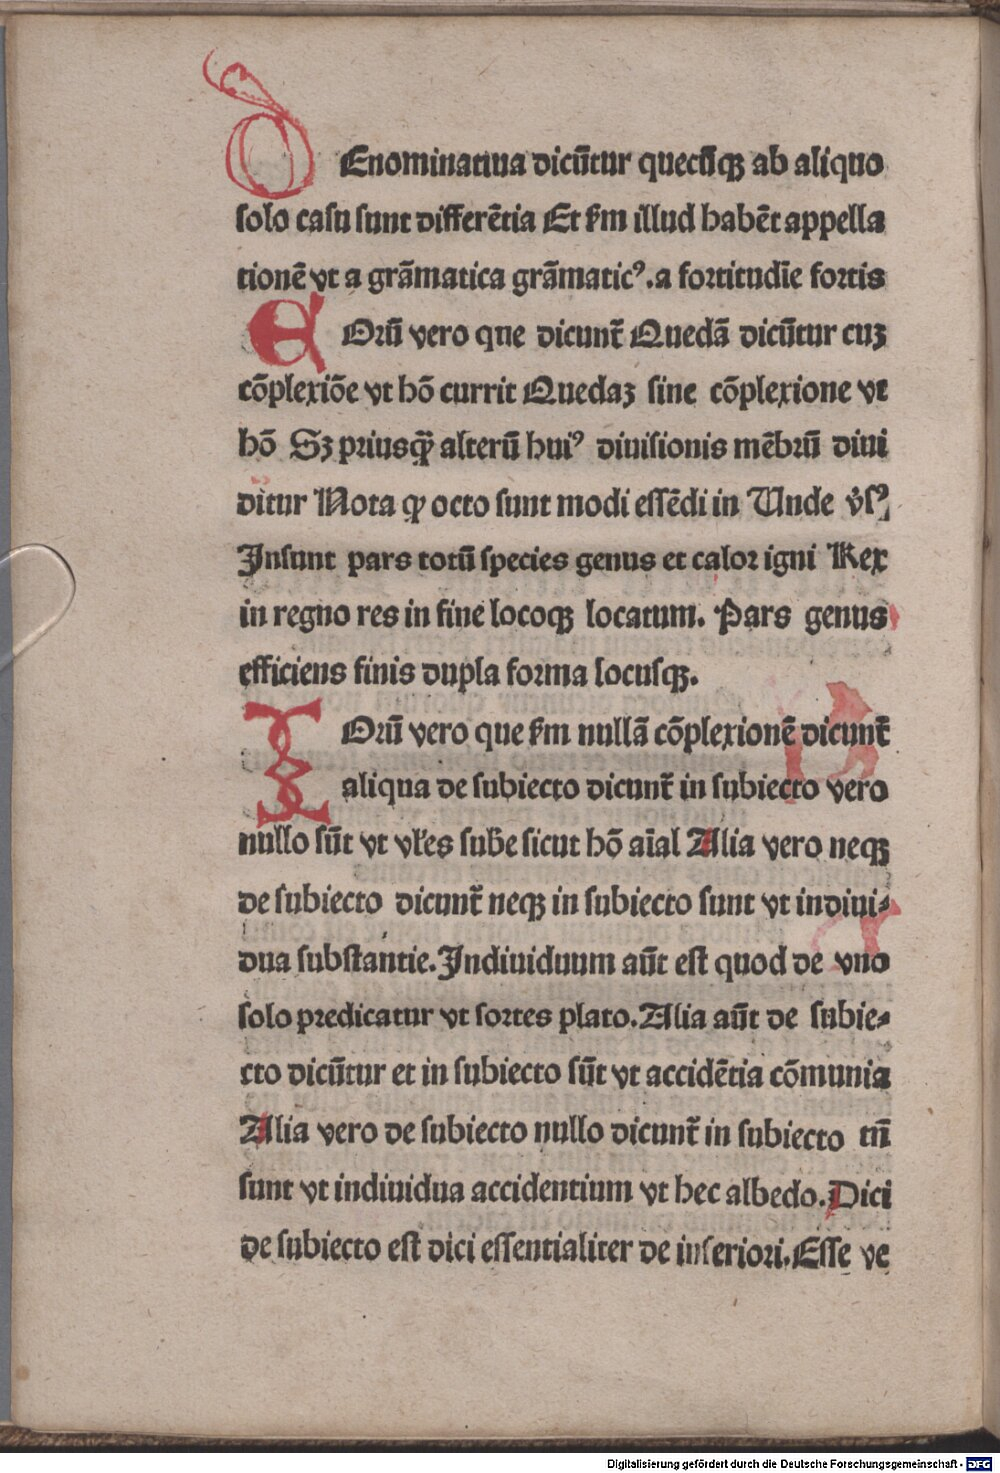 DEnominatiua dicūtur quecūqꝫ ab aliquo
solo casu sunt differētia Et ẜm illud habēt appella
tionē vt a grāmatica grāmaticꝰ. a fortitudīe fortis
EOrū vero que dicunt᷑ Quedā dicūtur cuꝫ
cōplexiōe vt hō currit Quedaꝫ sine cōplexione vt
hō Sꝫ priusqꝫ̄ alterū huiꝰ diuisionis mēbrū diui
ditur Nota ꝙ octo sunt modi essēdi in Unde v̓sꝰ
Insunt pars totū species genus et calor igni Rex
in regno res in fine locoqꝫ locatum. Pars genus
efficiens finis dupla forma locusqꝫ.
EOrū vero que ẜm nullā cōplexionē dicunt᷑
aliqua de subiecto dicunt᷑ in subiecto vero
nullo sūt vt vꝉes sube sicut hō aīal Alia vero neqꝫ
de subiecto dicunt᷑ neqꝫ in subiecto sunt vt indiui⸗
dua substantie. Indiuiduum aūt est quod de vno
solo predicatur vt sortes plato. Alia aūt de subie⸗
cto dicūtur et in subiecto sūt vt accidētia cōmunia
Alia vero de subiecto nullo dicunt᷑ in subiecto tn̄
sunt vt indiuidua accidentium vt hec albedo. Dici
de subiecto est dici essentialiter de inferiori. Esse ve
Digitalisierung gefördert durch die Deutsche Forschungsgemeinschaft - DFG